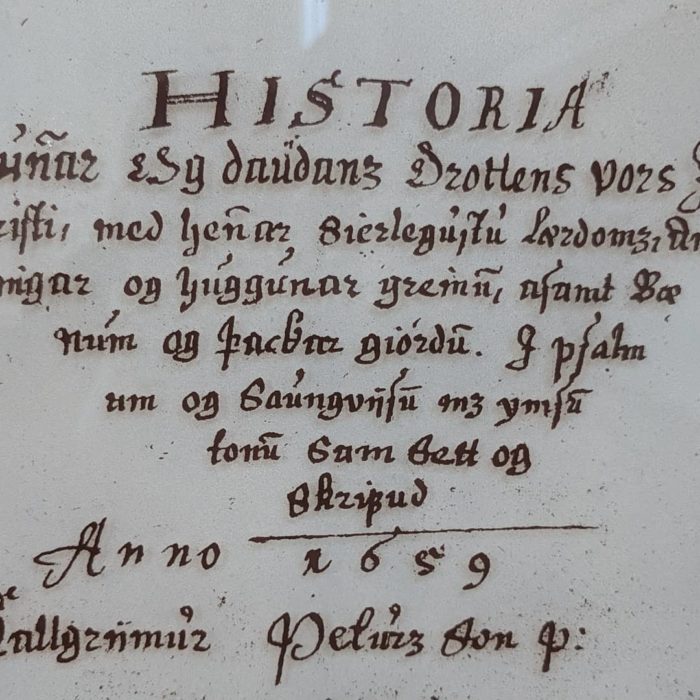 HISTORIA
ún̄ar Og daudans Drottens vors
risti, med hen̄ar sierlegustu lærdoms, án
ningar og huggunar greinū, asamt Bæ
num og þackar giördū. I psalm
um og Saungvijsū mz ymsū
tonū Sam Sett og
Skrifud
Anno 1659
Hallgrijmur Peturs Son p: